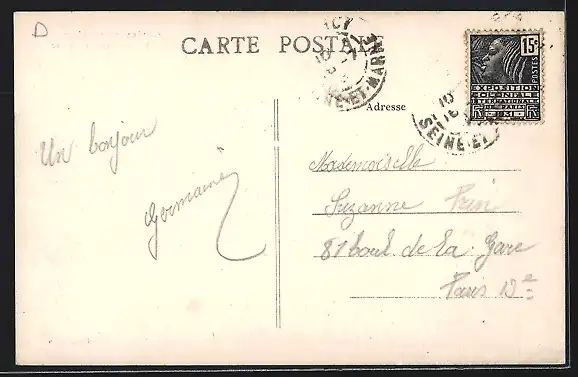 D
CARTE POSTALE
SEINE-ET-MARNE
15c
POSTES
EXPOSITION
COLONIALE
INTERNATIONALE
DE PARIS
RF
SEINE-ET-
Adresse
Un bonjour
Germaine
Mademoiselle
Suzanne
81 boul. de la Gare
Paris 13e